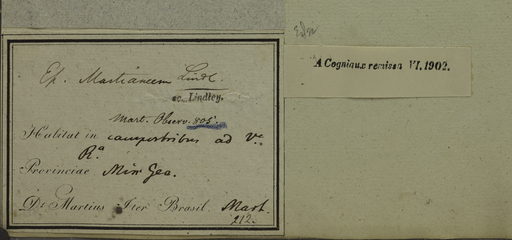 Ep. Martianum Lindl.
sc. Lindley.
Mart. Observ. 805.
Habitat in campestribus ad V
Ra
Provinciae Min Gea.
Dr. Martius Iter Brasil. Mart.
212.
A Cogniaux remissa VI. 1902.